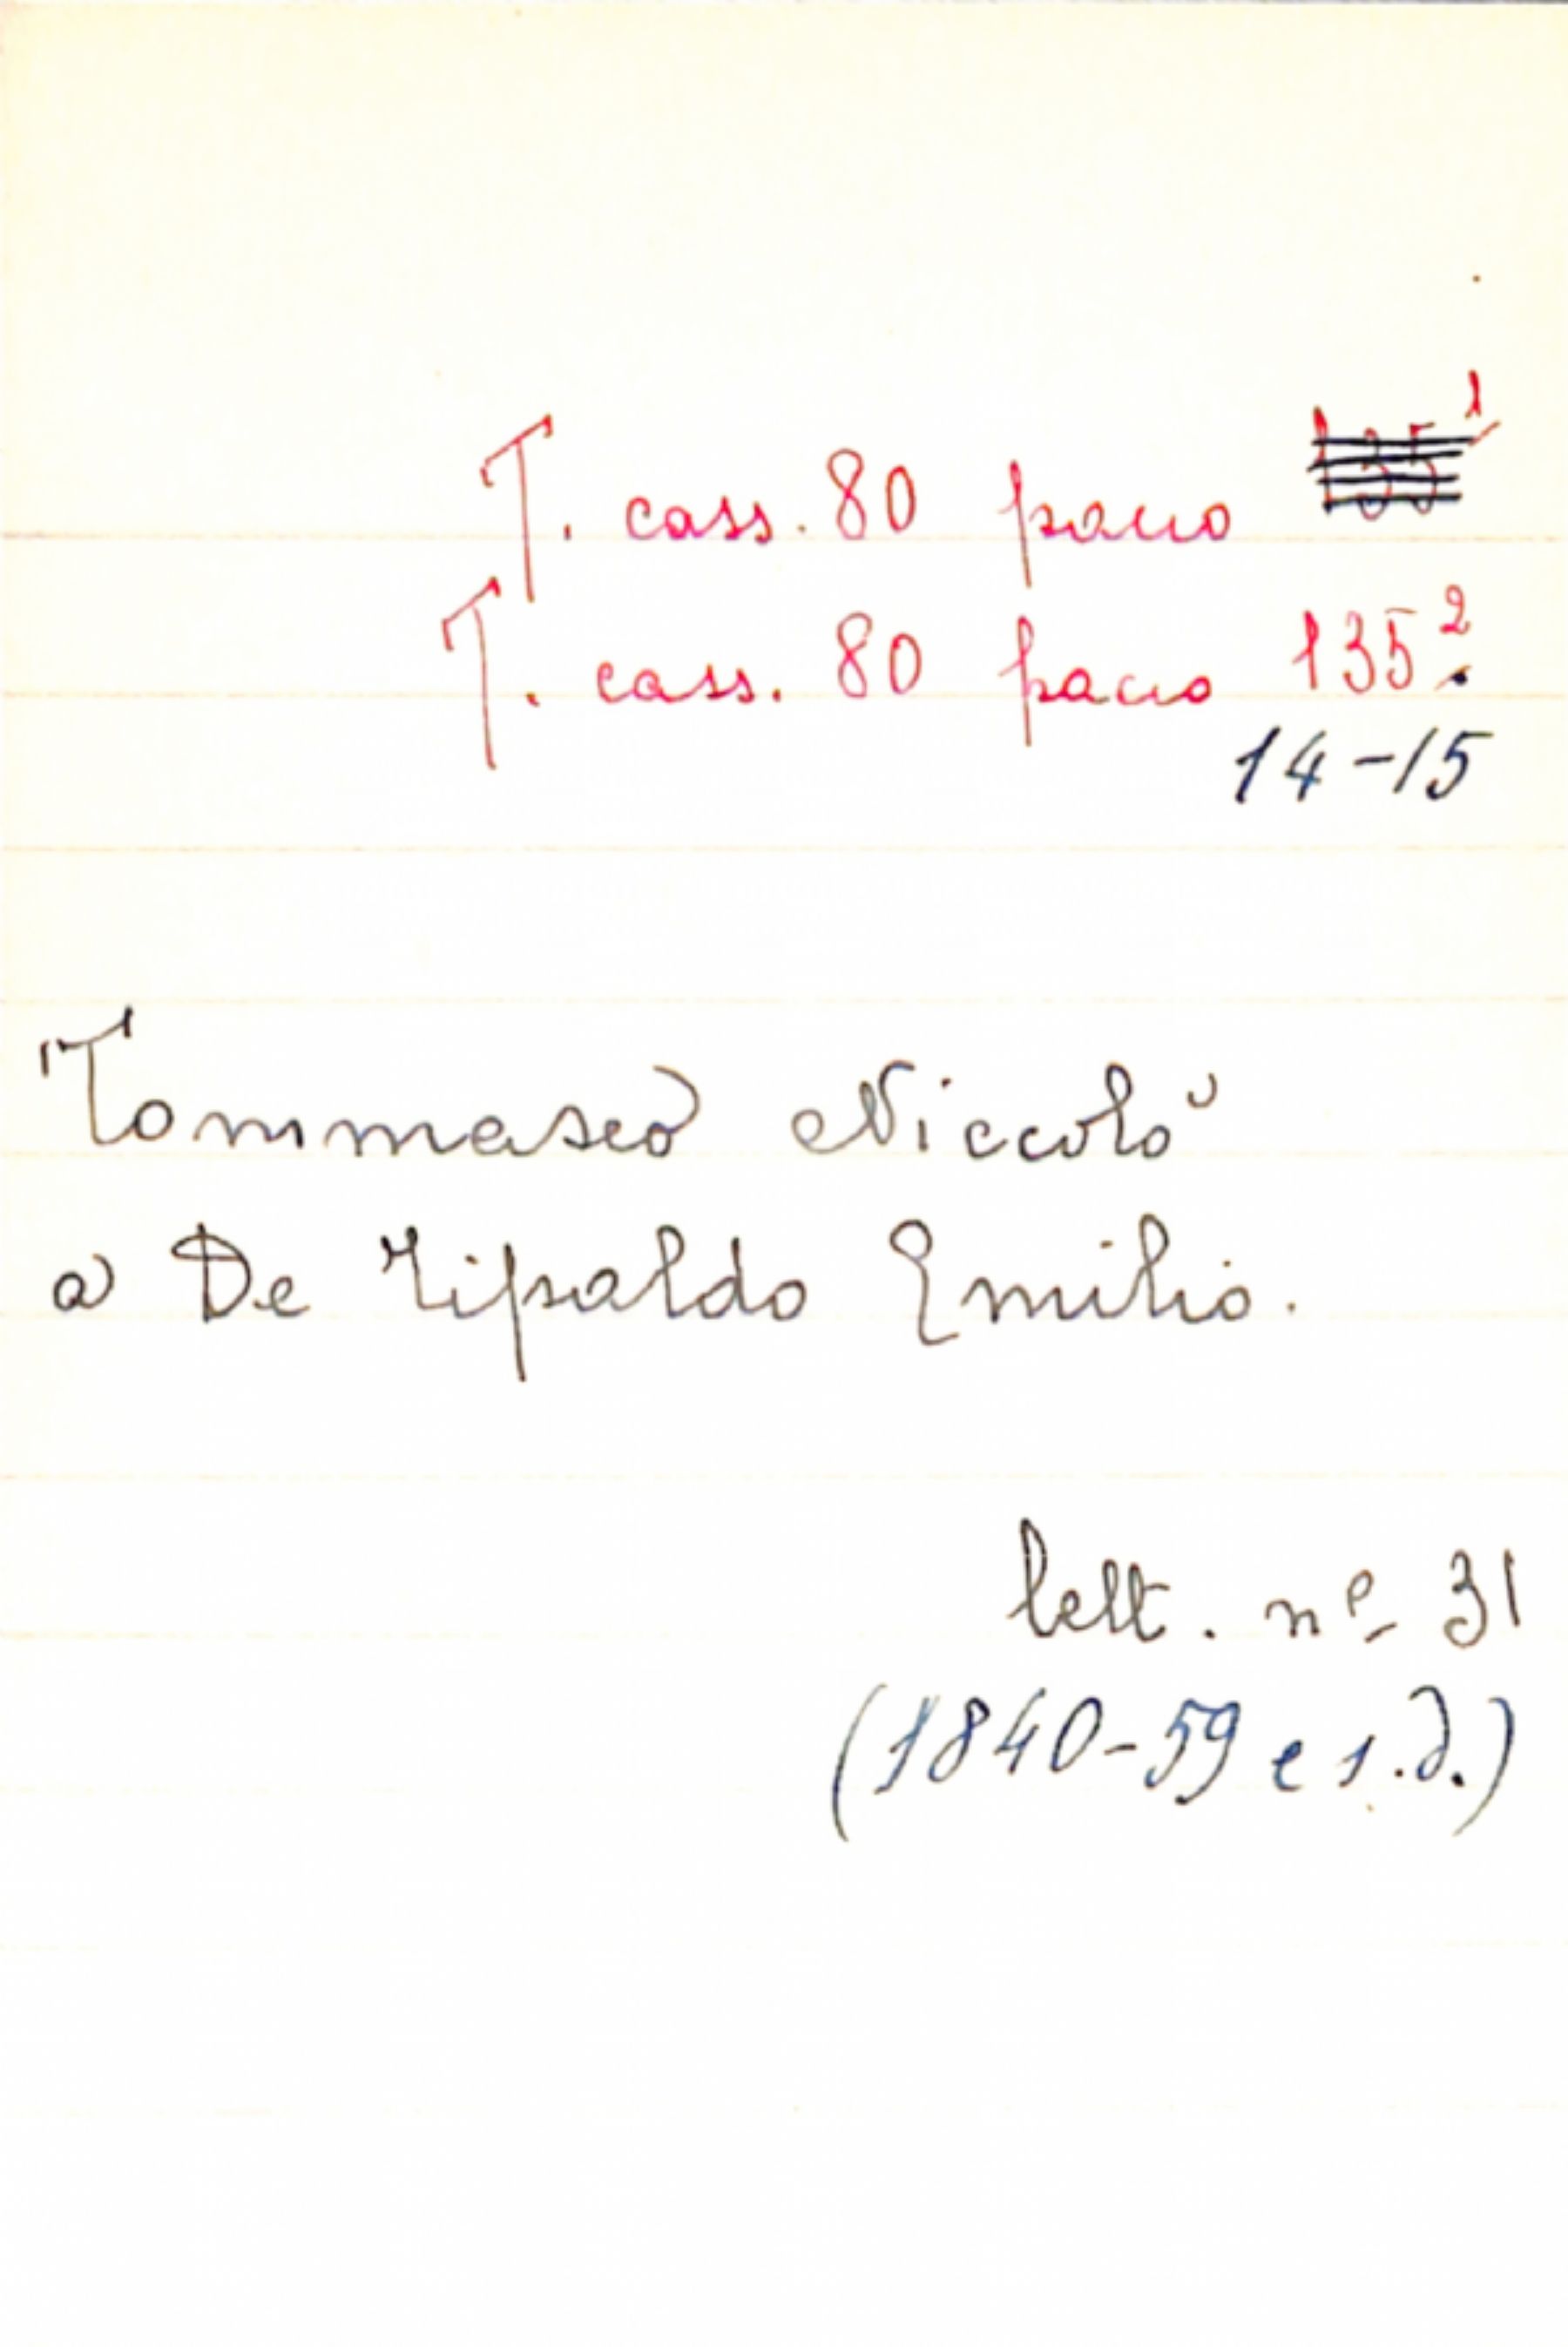 T. cass. 80 pacco 135¹
T. cass. 80 pacco 135².
14-15
Tommaseo Niccolò
a De Tipaldo Emilio.
lett. nº 31
(1840-59 e s.d.)